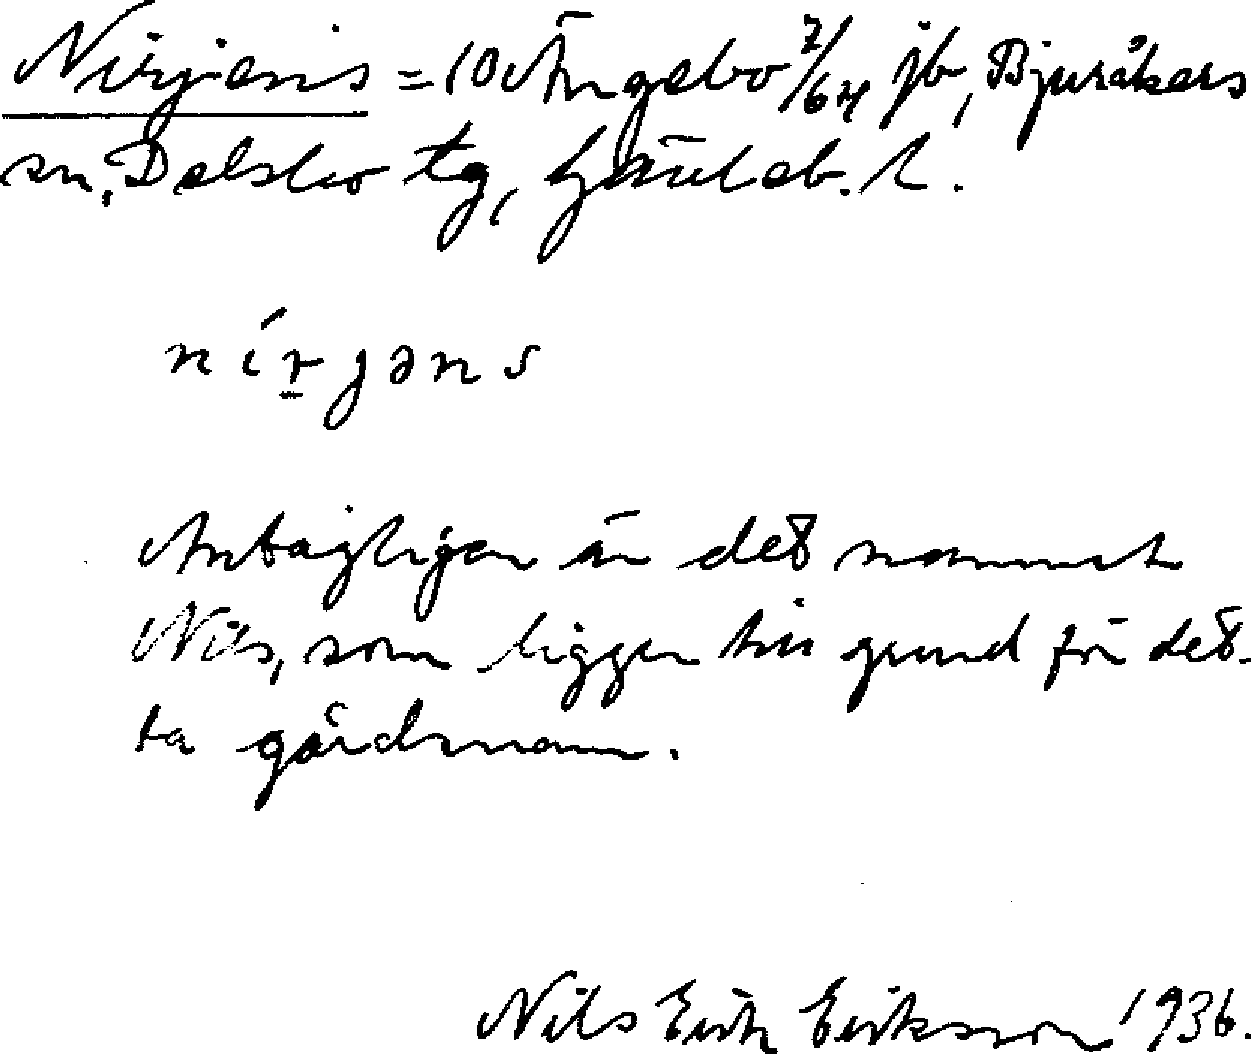 Nirjens = 10 Ängebo 7/64 jb, Bjuråkers
sn, Delsbo tg, Gävleb. l.
nírjəns
Antagligen är det namnet
Nils, som ligger till grund för det-
ta gårdsnamn.
Nils Erik Eriksson 1936.